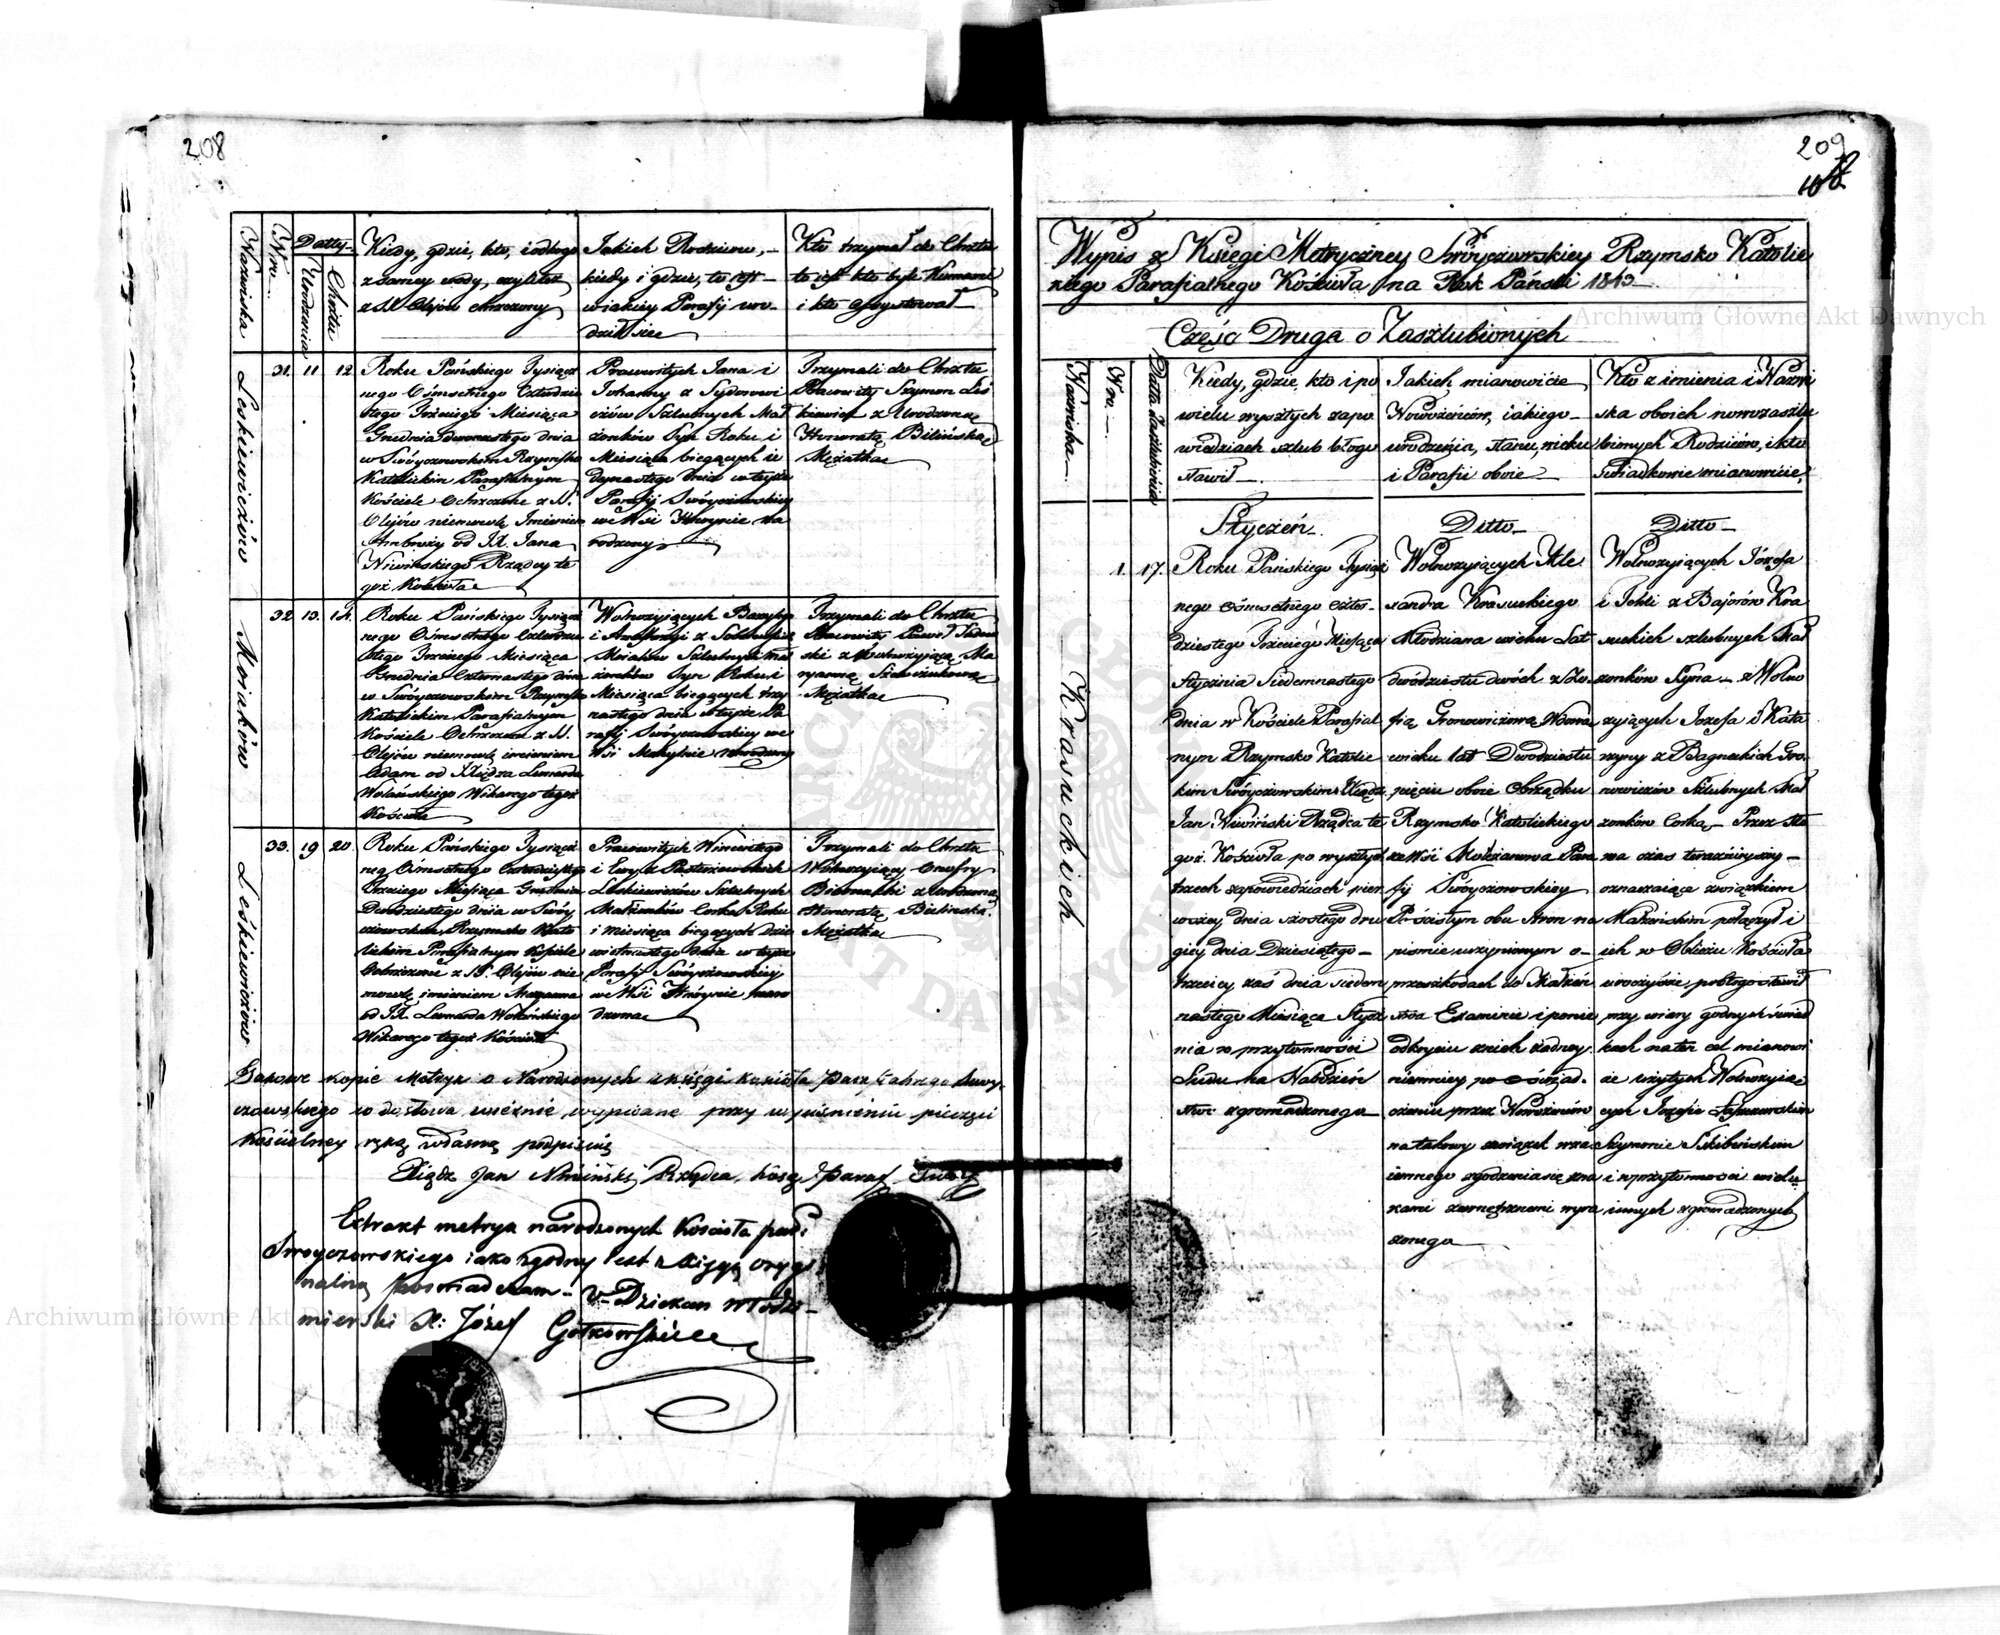 208
Nazwiska
Nro.
Datty
Urodzenia
Chrztu
Kiedy, gdzie, kto, i odkogo
z samey wody, czyli też
z S.S. Olejów chrzczony
Jakich Rodziców,
kiedy i gdzie, to iest
w iakiey Parafij uro
dził siee
Kto trzymał do Chrztu
to iest kto byli Kumami
i kto assystował
Leskiewiczów
31. 11 12
Roku Pańskiego Tysiącz
nego Ośmsetnego Czterdzie
stego Trzeciego Miesiąca
Grudnia dwunastego dnia
w Swóyczowskim Rzymsko
Katolickim Parafialnym
Kościele Ochrzczone z S.
Olejów niemowle Imieniem
Ambroży od JX. Jana
Niwińskiego Rządcy te
goż Kościoła
Pracowitych Jana i
Johanny z Sydorowi
czów Szlubnych Mał
żonków Syn Roku i
Miesiąca biegących ie
denastego dnia w teyże
Parafij Swóyczowskiey
we Wsi Hrynie na
rodzony
Trzymali do Chrztu
Pracowity Szymon Leś
kiewicz z Urodzoną
Honoratą Bilińską
Mężatką
Moiaków
32 13. 14.
Roku Pańskiego Tysiącz
nego Ośmsetnego Czterdzie
stego Trzeciego Miesiąca
Grudnia Czternastego dnia
w Swóyczowskim Rzymsko
Katolickim Parafialnym
Kościele Ochrzczone z S.
Olejów niemowle imieniem
Adam od Xiędza Leonarda
Wolańskiego Wikarego tegoż
Kościoła
Wolnożyjących Bazylego
Moiaków Szlubnych Mał
żonków Syn Roku i
Miesiąca biegących trzy
nastego dnia w teyże Pa
rafij Swóyczowskiey we
Wsi narodzony
Trzymali do Chrztu
Pracowity Paweł
ski z Wolnożyjącą Ma
ryanną
Mężatką
Leśkiewiczów
33. 19 20
Roku Pańskiego Tysiącz
nego Ośmsetnego Czterdziestego
Trzeciego Miesiąca Grudnia
Dwudziestego dnia w Swóy
czowskim Rzymsko Kato
lickim Parafialnym Kościele
Ochrzczone z S. Olejów nie
mowle imieniem Maryanna
od JX. Leonarda Wolańskiego
Wikarego tegoż Kościoła
Pracowitych Wincentego
i Ewy z
Leśkiewiczów Szlubnych
Małżonków Corka Roku
i miesiąca biegących dzie
wietnastego dnia w teyże
Parafij Swóyczowskiey
we Wsi Hrynie naro
dzona
Trzymali do Chrztu
Wolnożyjący Onufry
z Urodzoną
Honoratą Bielińską
Mężatką
Takowe kopie Metryk o Narodzonych z xsięgi kościoła Parafialnego Swoy-
czowskiego co do słowa wiernie wypisane przy wyciśnieniu pieczęci
Kościelney ręką własną podpisuię
Xiądz Jan Niwiński Rządca Kośc. Paraf. Swoy
Extrakt metryk narodzonych Kościoła par.
Swoyczowskiego iako zgodny iest z xięgą orygi
nalną poświadczam - V-Dziekan włodzi-
mierski X: Józef Gutkowski
209
108
Wypis z Księgi Metryczney Swóyczowskiey Rzymsko Katolic
kiego Parafialnego Kościoła na Rok Pański 1843
Część Druga o Zaszlubionych
Nazwiska
Nro.
Datta Zaszlubienia
Kiedy, gdzie, kto i po
wielu wyszłych zapo
wiedziach szlub błogo
sławił
Jakich mianowicie
Nowożeńców, iakiego
urodzenia, stanu, wieku
i Parafii oboie
Kto z imienia i Nazwi
ska oboich nowozaszlu
bionych Rodziców, i kto
Swiadkowie mianowicie,
Krasuckich
1. 17.
Styczeń
Roku Pańskiego Tysiącz
nego Ośmsetnego Czter
dziestego Trzeciego Miesiąca
Stycznia Siedemnastego
dnia w Kościele Parafial
nym Rzymsko Katolic
kim Swóyczowskim Xiądz
Jan Niwiński Rządca te
goż Kościoła po wyszłych
trzech zapowiedziach pier
wszey dnia szostego dru
giey dnia Dziesiątego
trzeciey zaś dnia siedem
nastego Miesiąca Stycz
nia w przytomności
Ludu na Nabożeń
stwo zgromadzonego
Ditto
Wolnożyjących Ale
xandra Krasuckiego
Młodziana wieku Lat
dwudziestu dwóch z Zo
fią Gronowiczową Wdową
wieku lat Dwudziestu
pięciu oboie Obrządku
Rzymsko Katolickiego
ze Wsi Para
fij Swóyczowskiey
Po ścisłym obu stron na
piśmie uczynionym o
przeszkodach do Małżeń
stwa Examinie i ponie
odkryciu żadney
niemniey po oświad
czeniu przez Nowożeńców
na takowy związek wza
iemnego zgodzenia się zna
kami zewnętrznemi wyra
żonego
Ditto
Wolnożyjących Józefa
i Tekli z Bajorów Kra
suckich szlubnych Mał
żonków Syna - z Wolno
żyjących Jozefa i Kata
rzyny z Bagneckich Gro
nowiczów Szlubnych Mał
żonków Corką - Przez Sło
wa czas teraznieyszy
oznaczaiące związkiem
Małżeńskim połączył i
ich w Obliczu Kościoła
uroczyście pobłogosławił
przy wiary godnych świad
kach na ten cel mianowi
cie użytych Wolnożyią
cych Jozefie
Szymonie Skibińskim
i w przytomności wielu
innych zgromadzonych
Archiwum Główne Akt Dawnych
Archiwum Główne Akt Dawnych